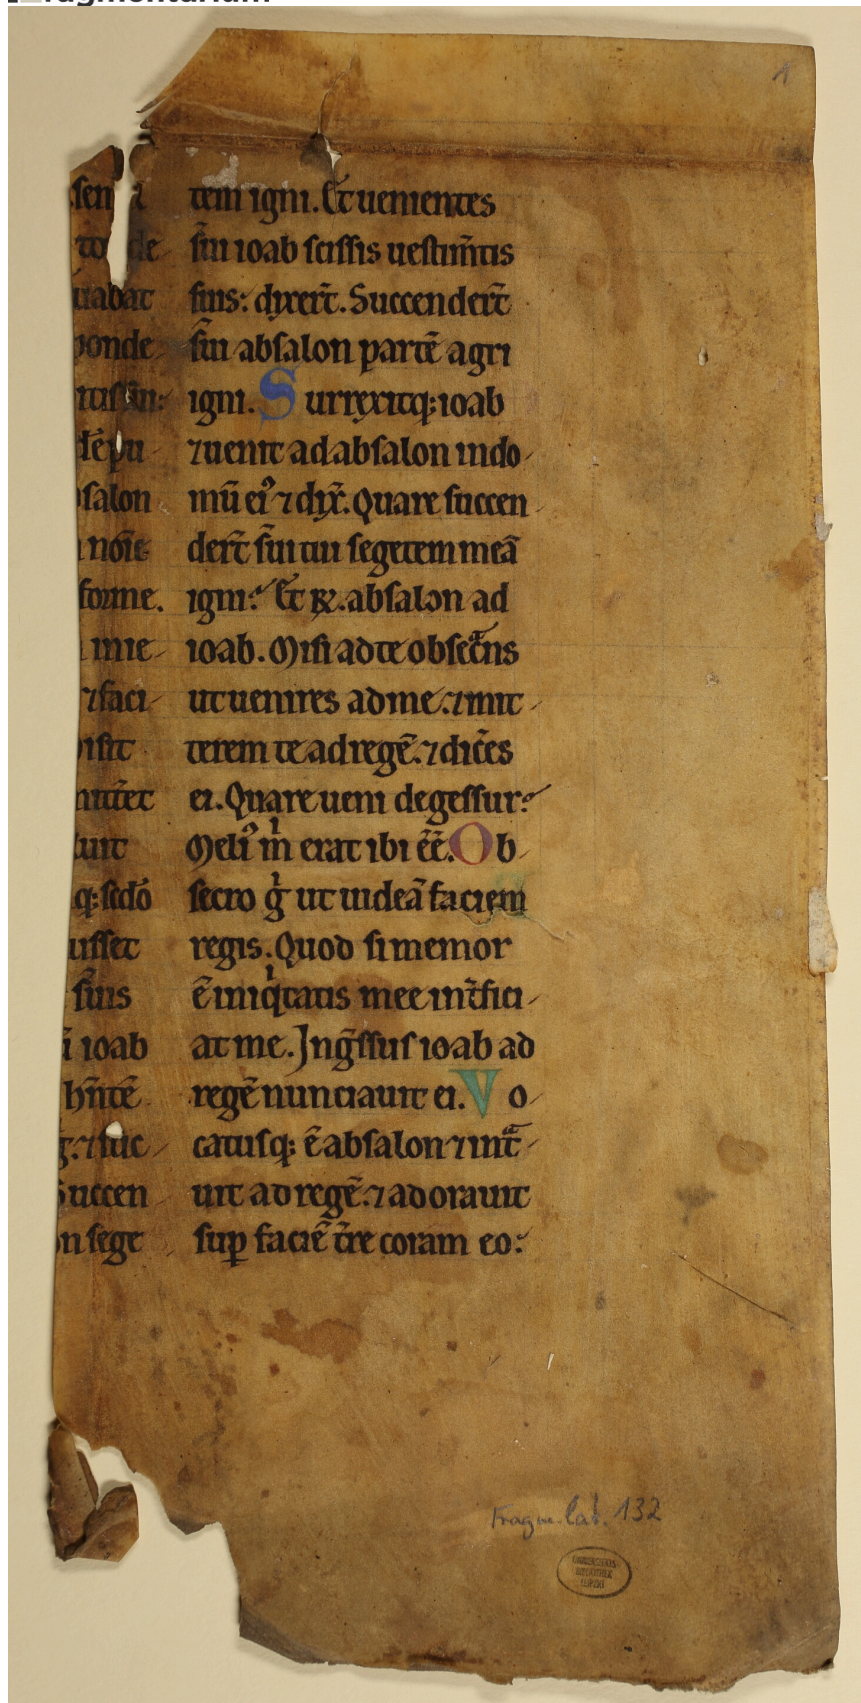 ragmentarium
1
sen
to de
uabat
ponde
dē pu
salon
noīe
forme.
mie
⁊faci
iſit
mittet
luit
q; ſcdo
uiſſet
ſuis
ioab
hñtē
⁊ſuc
Succen
on ſege
tem igni. Et uenientes
ſui ioab ſciſſis ueſtim̄tis
ſuis: dixer̄t. Succender̄t
ſui abſalon partē agri
igni. Surrexitq; ioab
⁊uenit ad abſalon indo
mū eiꝰ ⁊ dix̄. Quare ſuccen
der̄t ſui tui ſegetem meā
igni? Et R̄. abſalon ad
ioab. Miſi ad te obſecͣns
ut uenires ad me. ⁊mit
terem te ad regē. ⁊dic̄es
ei. Quare ueni de geſſur?
Meliꝰ m̍ erat ibi ēē. Ob
ſecro g̍ ut uideā faciem
regis. Quod ſi memor
ē iniq̍tatis mee int̄fici
at me. Ingͣſſuſ ioab ad
regē nunciauit ei. Vo
catuſq; ē abſalon ⁊intͣ
uit ad regē. ⁊adorauit
ſuꝑ faciē t̄re coram eo:
Fragm. lat. 132
UNIVERSITÄTS
BIBLIOTHEK
LEIPZIG